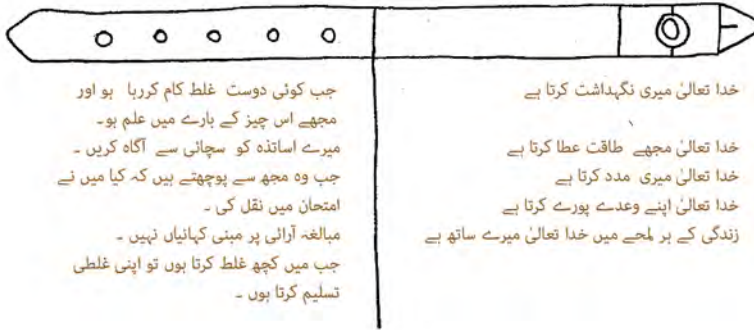 خدا تعالیٰ میری نگہداشت کرتا ہے
خدا تعالیٰ مجھے طاقت عطا کرتا ہے
خدا تعالیٰ میری مدد کرتا ہے
خدا تعالیٰ اپنے وعدے پورے کرتا ہے
زندگی کے ہر لمحے میں خدا تعالیٰ میرے ساتھ ہے
جب کوئی دوست غلط کام کررہا ہو اور
مجھے اس چیز کے بارے میں علم ہو۔
میرے اساتذہ کو سچائی سے آگاہ کریں ۔
جب وہ مجھ سے پوچھتے ہیں کہ کیا میں نے
امتحان میں نقل کی ۔
مبالغہ آرائی پر مبنی کہانیاں نہیں ۔
جب میں کچھ غلط کرتا ہوں تو اپنی غلطی
تسلیم کرتا ہوں ۔